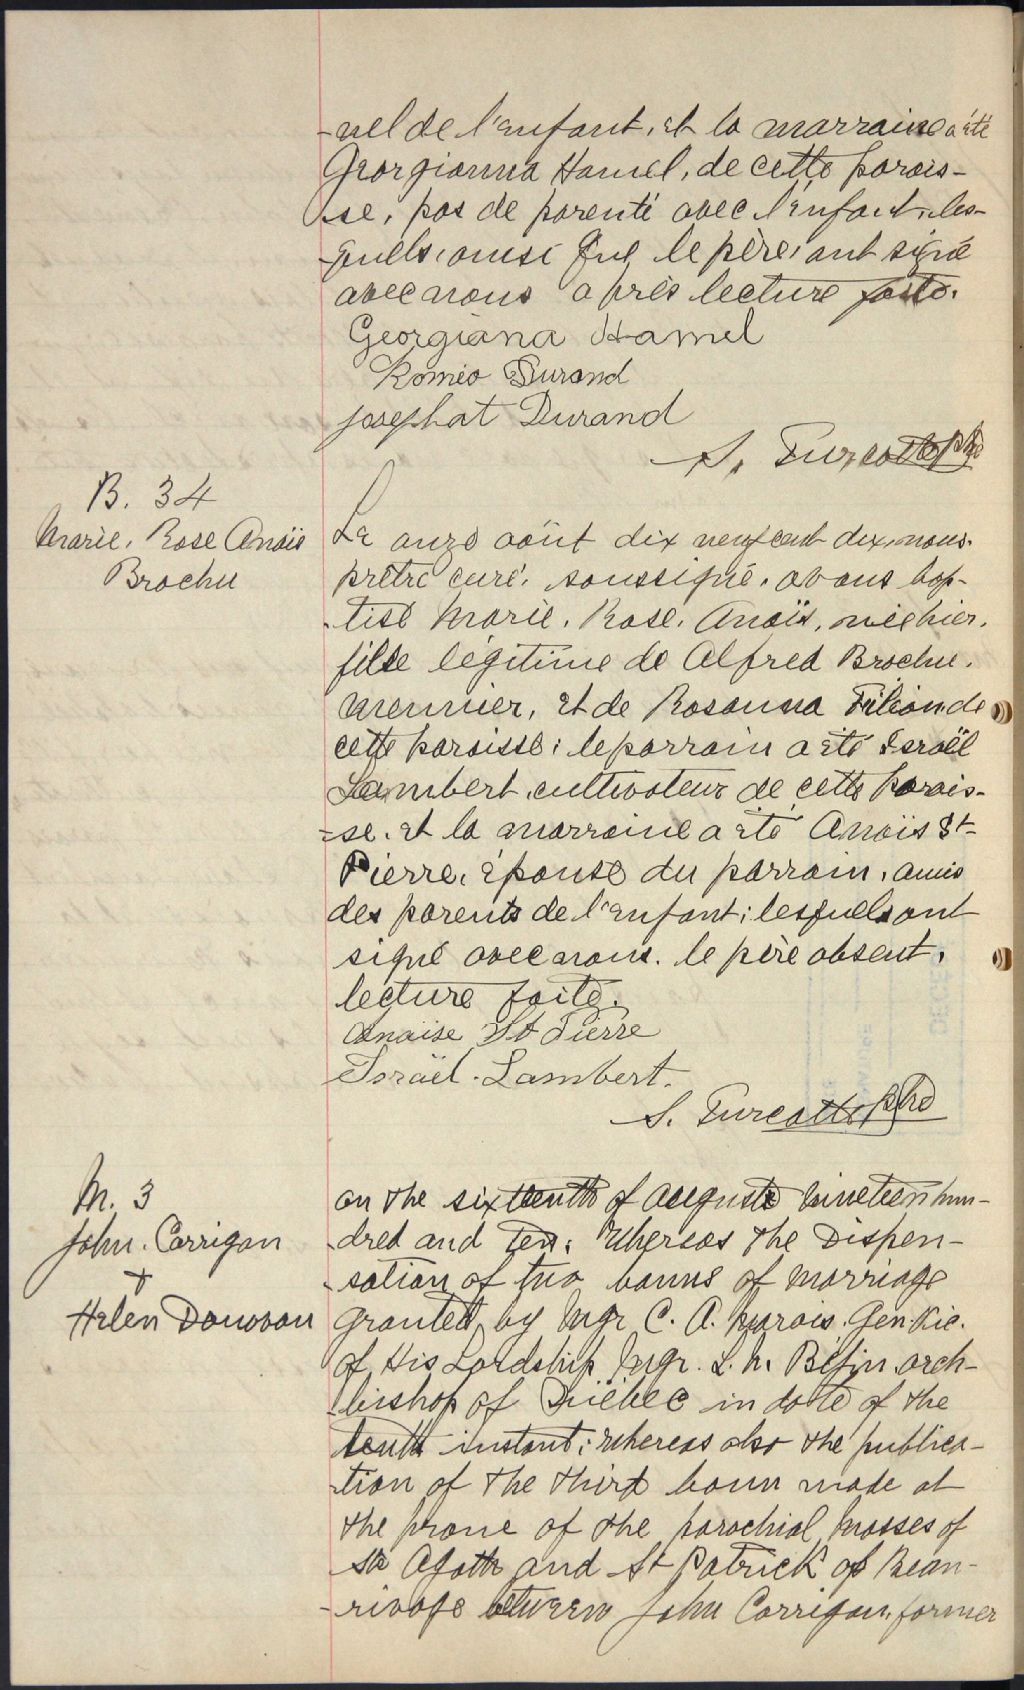 -nel de l'enfant, et la marraine a été
Georgianna Hamel, de cette parois-
se, pas de parenté avec l'enfant, les-
quels, ainsi que le père, ont signé
avec nous après lecture faite.
Georgiana Hamel
Roméo Durand
Josephat Durand
S. Turcotte ptre
B. 34
Marie, Rose Anaïs
Brochu
Le onze août dix neuf cent dix, nous
prêtre curé, soussigné, avons bap-
-tisé Marie, Rose, Anaïs, née hier,
fille légitime de Alfred Brochu,
meunier, et de Rosanna Filion de
cette paroisse; le parrain a été Israël
Lambert, cultivateur de cette parois-
-se, et la marraine a été Anaïs St-
Pierre, épouse du parrain, amis
des parents de l'enfant; lesquels ont
signé avec nous. le père absent.
lecture faite.
Anaise St Pierre
Israël Lambert.
S. Turcotte ptre
M. 3
John Corrigan
+
Helen Donovan
on the sixteenth of auguste nineteen hun-
-dred and ten; Whereas the Dispen-
-sation of two banns of marriage
granted by Mgr C. A. Marois Gen. Vic.
of His Lordship Mgr. L. N. Bégin arch-
-bishop of Québec in date of the
tenth instant; whereas also the publica-
-tion of the third bann made at
the prone of the parochial Masses of
Ste Agathe and St Patrick of Beau-
-rivage between John Corrigan, farmer